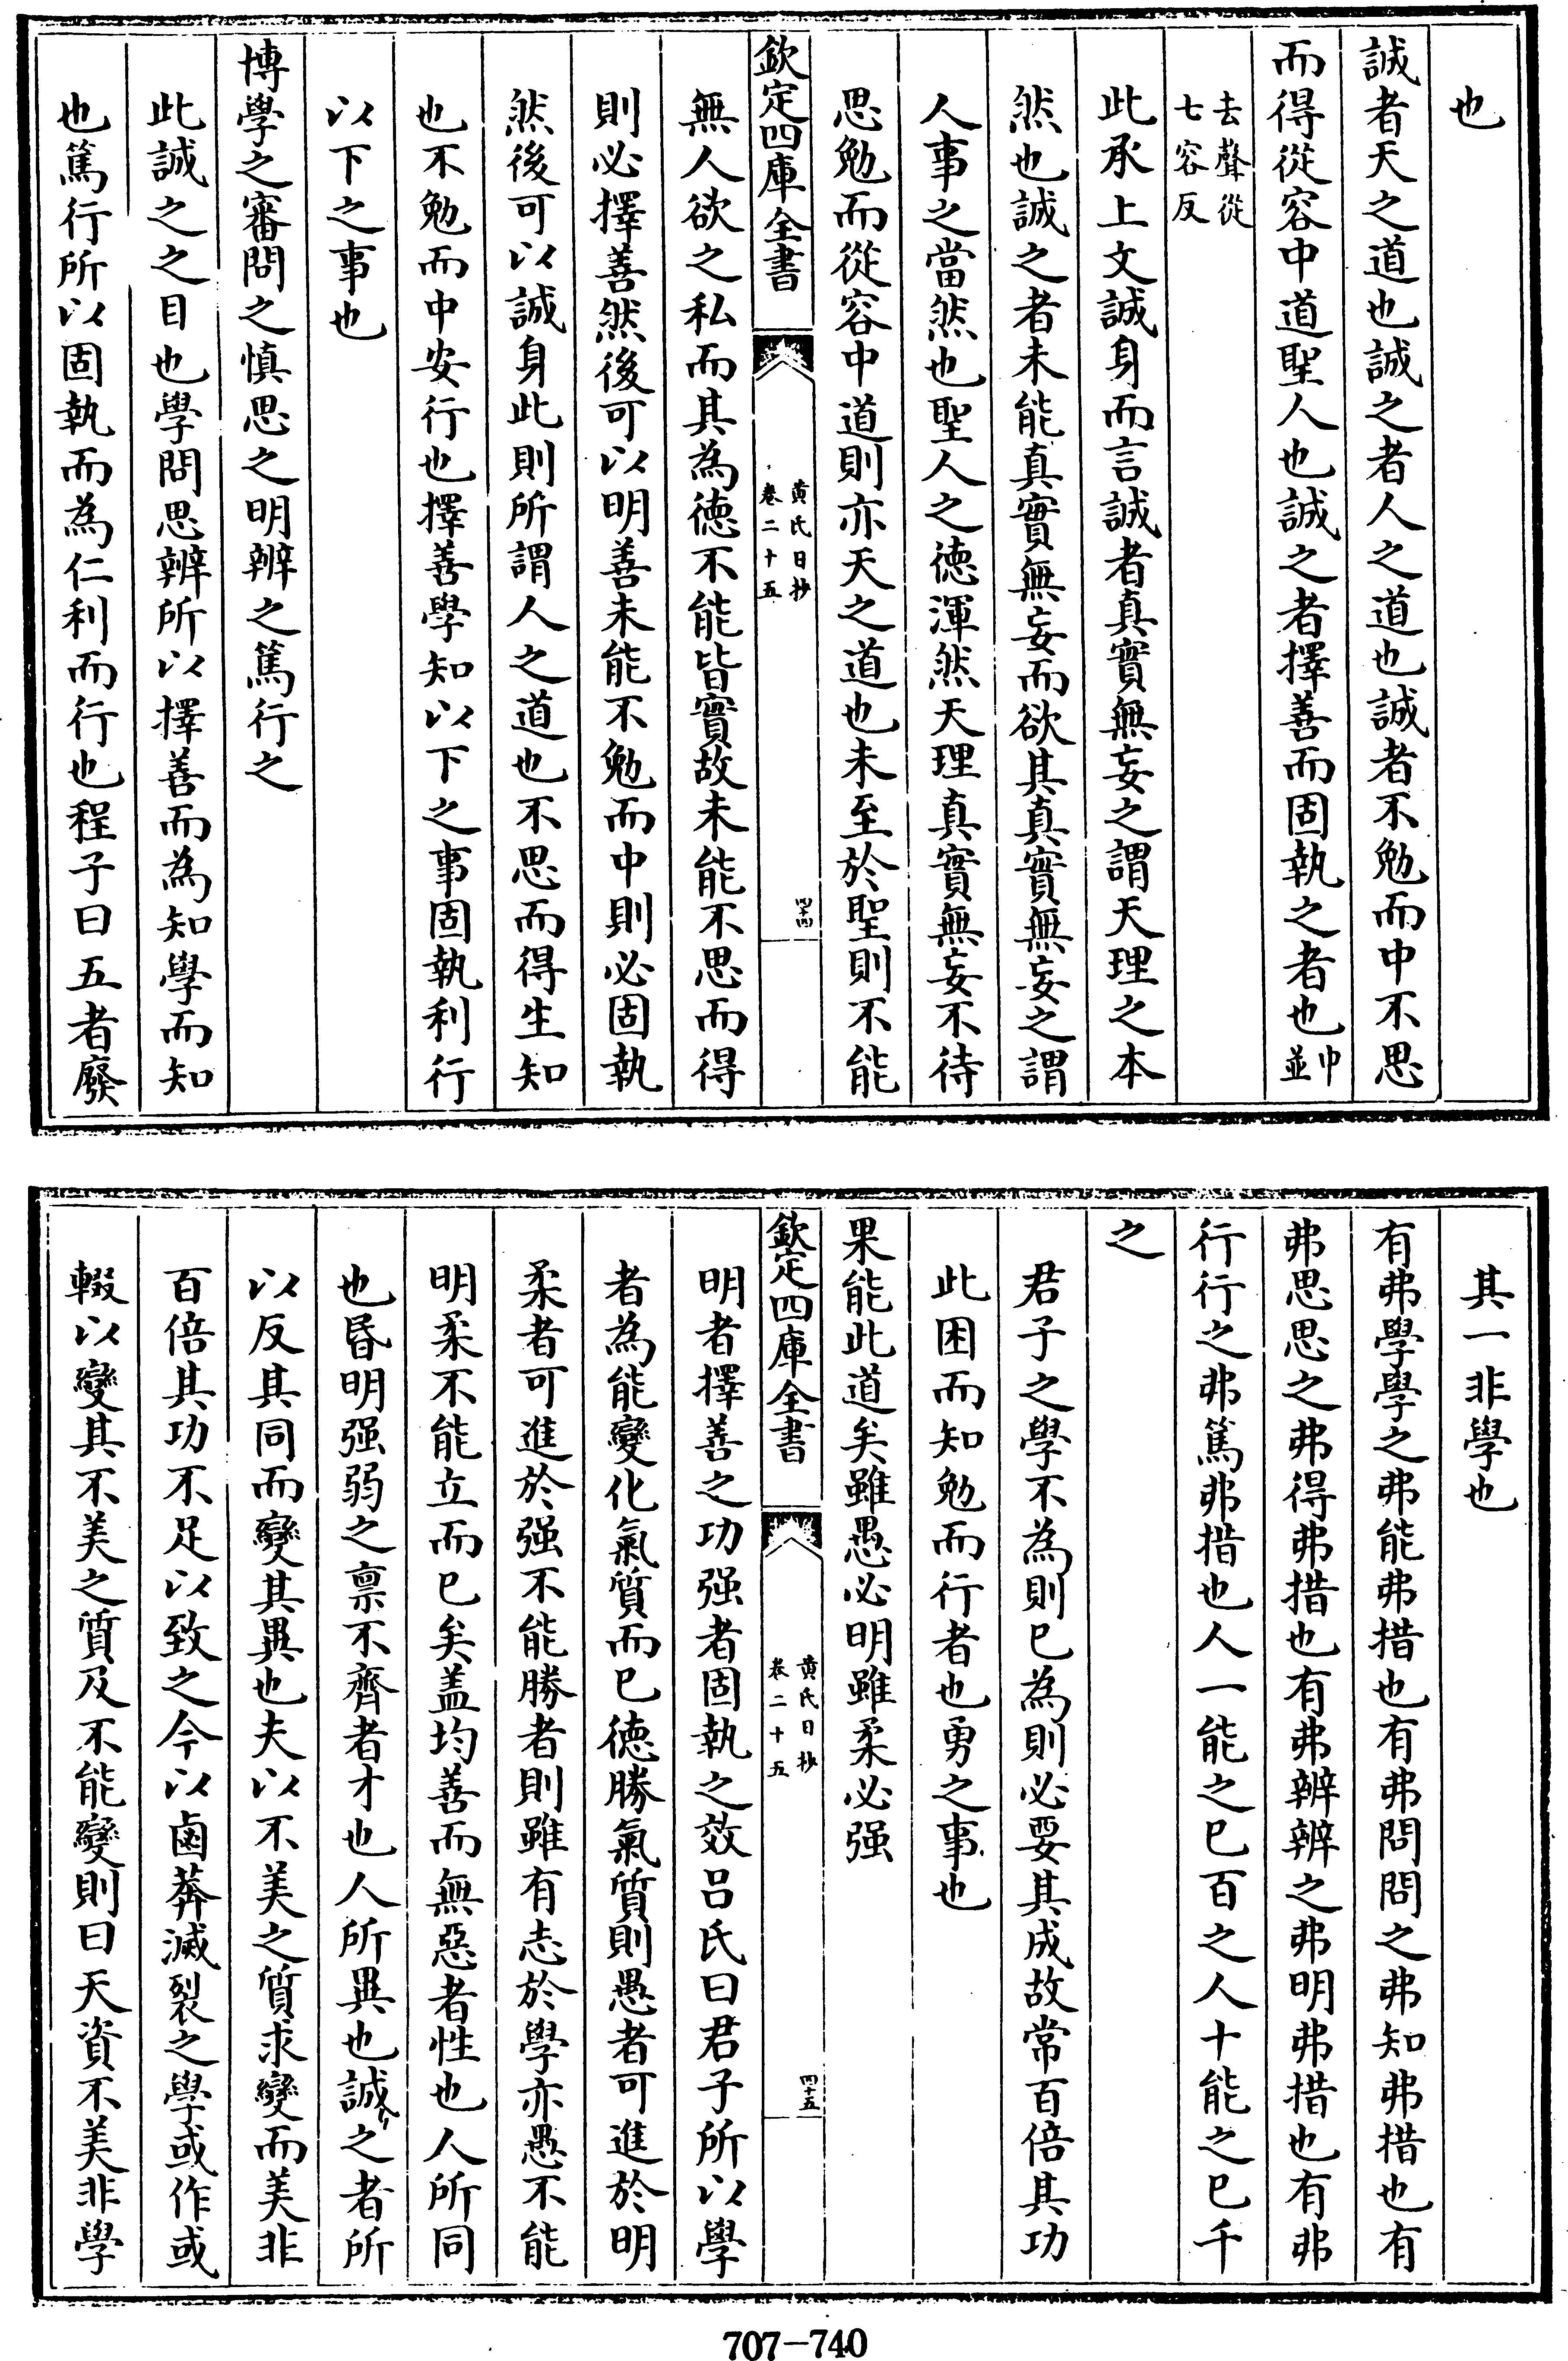 也
誠者天之道也誠之者人之道也誠者不勉而中不思
而得從容中道聖人也誠之者擇善而固執之者也中並
去聲從
七容反
此承上文誠身而言誠者真實無妄之謂天理之本
然也誠之者未能真實無妄而欲其真實無妄之謂
人事之當然也聖人之德渾然天理真實無妄不待
思勉而從容中道則亦天之道也未至於聖則不能
欽定四庫全書
黄氏日抄
卷二十五
四十四
無人欲之私而其為德不能皆實故未能不思而得
則必擇善然後可以明善未能不勉而中則必固執
然後可以誠身此則所謂人之道也不思而得生知
也不勉而中安行也擇善學知以下之事固執利行
以下之事也
博學之審問之慎思之明辨之篤行之
此誠之之目也學問思辨所以擇善而為知學而知
也篤行所以固執而為仁利而行也程子曰五者廢
其一非學也
有弗學學之弗能弗措也有弗問問之弗知弗措也有
弗思思之弗得弗措也有弗辨辨之弗明弗措也有弗
行行之弗篤弗措也人一能之己百之人十能之己千
之
君子之學不為則已為則必要其成故常百倍其功
此困而知勉而行者也勇之事也
果能此道矣雖愚必明雖柔必强
欽定四庫全書
黄氏日抄
卷二十五
四十五
明者擇善之功强者固執之效吕氏曰君子所以學
者為能變化氣質而已德勝氣質則愚者可進於明
柔者可進於强不能勝者則雖有志於學亦愚不能
明柔不能立而已矣盖均善而無惡者性也人所同
也昏明强弱之禀不齊者才也人所異也誠之者所
以反其同而變其異也夫以不美之質求變而美非
百倍其功不足以致之今以鹵莽滅裂之學或作或
輟以變其不美之質及不能變則曰天資不美非學
707-740